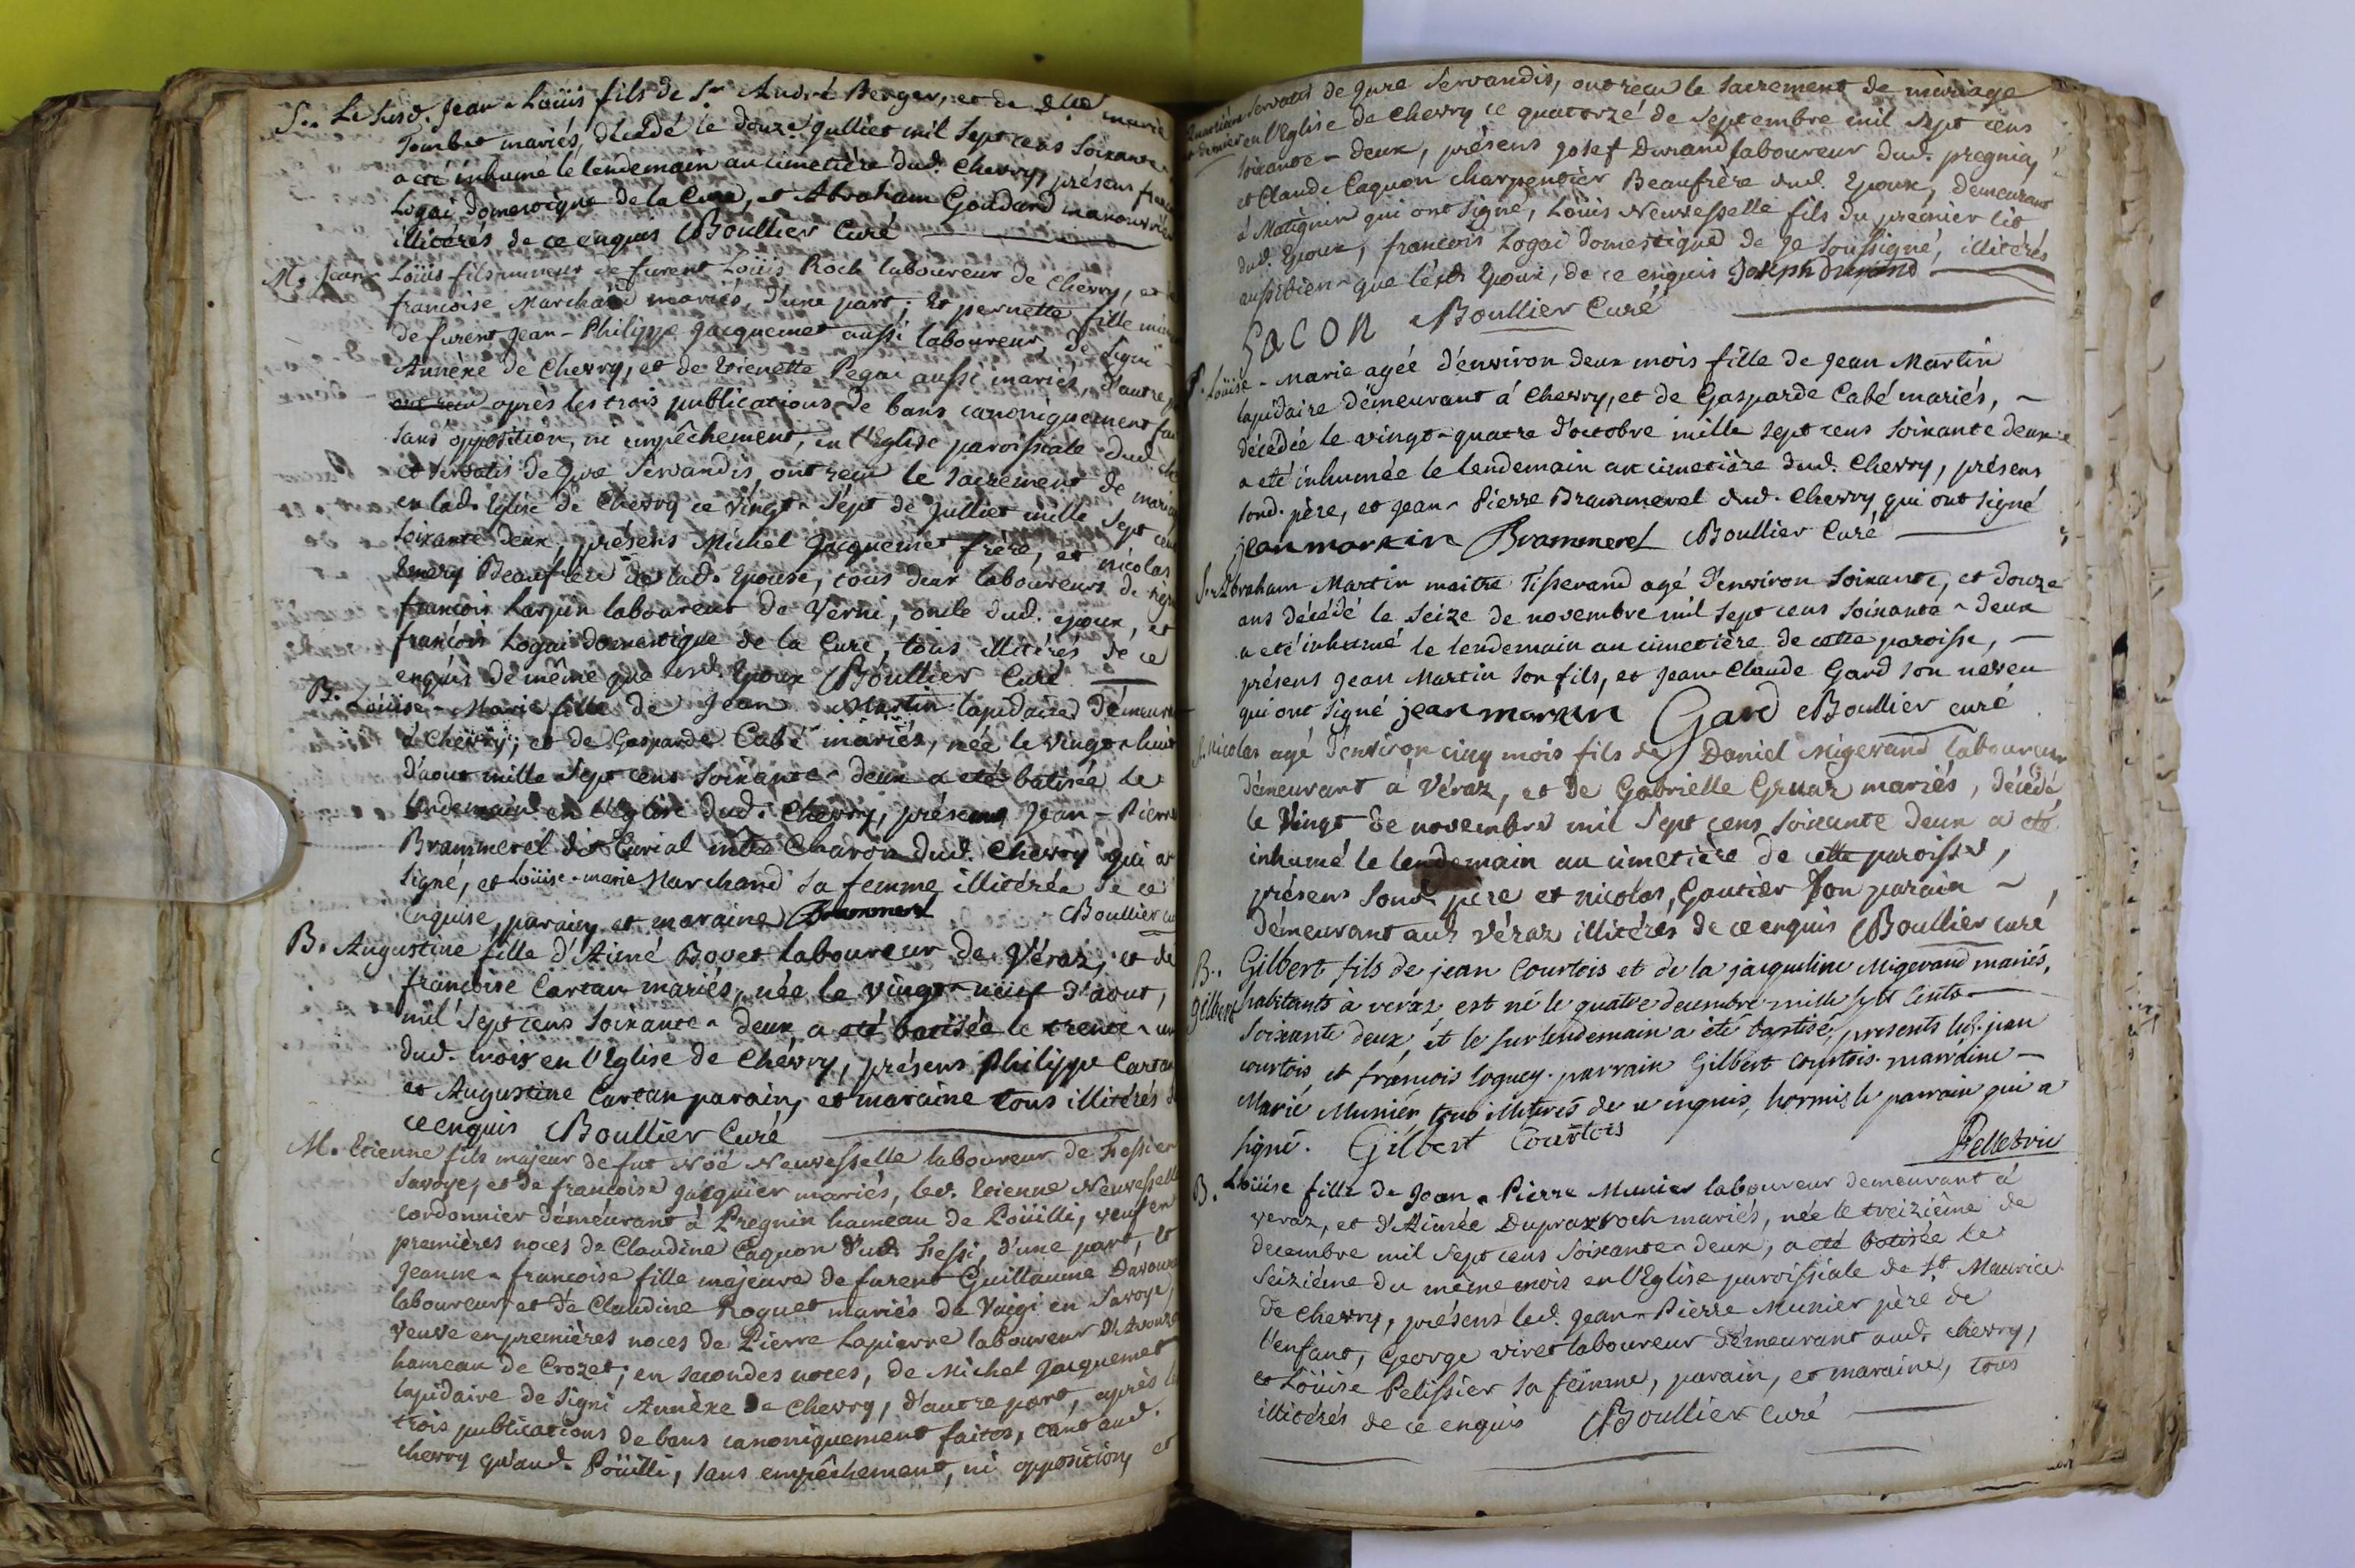 S.. Le susd. Jean-Loüis fils de Sr André Berger, et de dlle marie
Tombet mariés, décédé le douze Julliet mil sept cens soixante
a eté inhumé le lendemain au cimetière dud. Chevry, présens
Logai domestique de la Cure, et Abraham Goudard manouvrier
illitérés de ce enquis Boullier Curé
M. Jean-Loüis fils mineur de furent Loüis Roch laboureur de Chevry, et
francoise Marchand mariés, d'une part; Et pernette fille
de furent Jean-Philippe Jacquemet aussi laboureur, de Signi
Annèxe de Chevry, et de Etienette Pegai aussi mariés, d'autre
après les trois publications de bans canoniquement
sans opposition, ni empêchement, en l'Eglise paroissiale dud.
et servatis de Jure Servandis, ont reçu le sacrement de
en lad. Eglise de Chevry ce Vingt-Sept de Julliet mille sept cens
soixante deux, présens Michel Jacquemet frère, et nicolas
Emery Beaufrère de lad. Epouse, tous deux laboureurs de
francois Larpin laboureur de Verni, oncle dud. epoux, et
francois Logai domestique de la Cure, tous illitérés de ce
enquis de même que lesd. Epoux Boullier Curé
B. Loüise-Marie fille de Jean Martin lapidaire démeurant
à Chevry, et de Gasparde Cabé mariés, née le vingt-huit
d'aout mille sept cens soixante-deux a eté batisée le
lendemain en l'Eglise dud. Chevry, présens Jean-Pierre
Brammerel dit Curial mtre Charon dud. Chevry qui a
signé, et Loüise-marie Marchand sa femme illitérée de ce
Enquise, parain, et maraine Brammerel Boullier
B. Augustine fille d'Aimé Bovet laboureur de Véraz, et de
francoise Cartan mariés, née le vingt-neuf d'aout,
mil sept cens soixante-deux a eté batisée le trente-un
dud. mois en l'Eglise de Chévry, présens Philippe Cartan
et Augustine Cartan parain, et maraine tous illitérés
ce enquis Boullier Curé
M. Etienne fils majeur de fut Noë Neuvesselle laboureur de Fessier
Savoye, et de francoise Jacquier mariés, led. Etienne Neuvesselle
cordonnier démeurant à Pregnin hameau de Poüilli, veuf en
premières noces de Claudine Caquon dud. Fessi, d'une part, et
Jeanne-francoise fille majeure de furent Guillaume
laboureur, et de Claudine Roguet mariés de Vuigi en Savoye,
Veuve en premières noces de Pierre Lapierre laboureur
hameau de Crozet; en secondes noces, de Michel Jacquemet
lapidaire de Signi Annèxe de Chevry, d'autre part, après
trois publications de bans canoniquement faites, tant aud.
Chevry qu'aud. Poüilli, sans empêchement, ni opposition, et
servatis de Jure Servandis, ont reçu le sacrement de mariage
en l'Eglise de Chevry ce quatorzé de Septembre mil sept cens
soixante-deux, présens Josef Durand laboureur dud. pregnin,
et Claude Caquon charpentier Beaufrère dud. Epoux, demeurant
à Matignin qui ont signé, Loüis Neuvesselle fils du premier lit
dud. Epoux, francois Logai domestique de Je soussigné, illitérés
aussitien-que lesd. Epoux, de ce enquis Joseph durand
GACON Boullier Curé
S. Loüise-Marie agée d'environ deux mois fille de Jean Martin
lapidaire démeurant á Chevry, et de Gasparde Cabé mariés,
décédée le vingt-quatre d'octobre mille sept cens soixante deux
a eté inhumée le lendemain au cimetière dud. Chevry, présens
sond. père, et Jean-Pierre Brammerel dud. Chevry qui ont signé
jean martin Brammerel Boullier Curé
S. Abraham Martin maitre Tisserand agé d'environ soixante, et douze
ans décédé le seize de novembre mil sept cens soixante-deux
a eté inhumé le lendemain au cimetière de cette paroisse,
présens Jean Martin son fils, et Jean-Claude Gard son neveu
qui ont signé jean martin Gard Boullier curé
S. Nicolas agé d'environ cinq mois fils de Daniel Migerand laboureur
démeurant à Véraz, et de Gabrielle Gruaz mariés, décédé
le Vingt de novembre mil sept cens soixante deux a eté
inhumé le lendemain au cimetière de cette paroisse,
présens sond. père et nicolas Gautier son parain
démeurant aud. Véraz illitérés de ce enquis Boullier curé
B.. Gilbert fils de jean Courtois et de la jacqueline Migerand mariés,
Gilbert habitants à veraz, est né le quatre decembre mille sept cents
soixante deux, et le surlendemain a été baptisé, presents led. jean
courtois, et françois loguey. parrain Gilbert Courtois. marraine
Marie Munier tous illiterés de ce enquis, hormis le parrain qui a
signé. Gilbert Courtois Pelletrie
B. Loüise fille de Jean-Pierre Munier laboureur demeurant à
veraz, et d'Aimée Dupraz roch mariés, née le treizième de
decembre mil sept cens soixante-deux, a eté batisée le
seizième du même mois en l'Eglise paroissiale de St Maurice
de Chevry, présens led. Jean-Pierre Munier père de
l'enfant, George viret laboureur démeurant aud. Chevry,
et Loüise Pelissier sa femme, parain, et maraine, tous
illitérés de ce enquis Boullier Curé